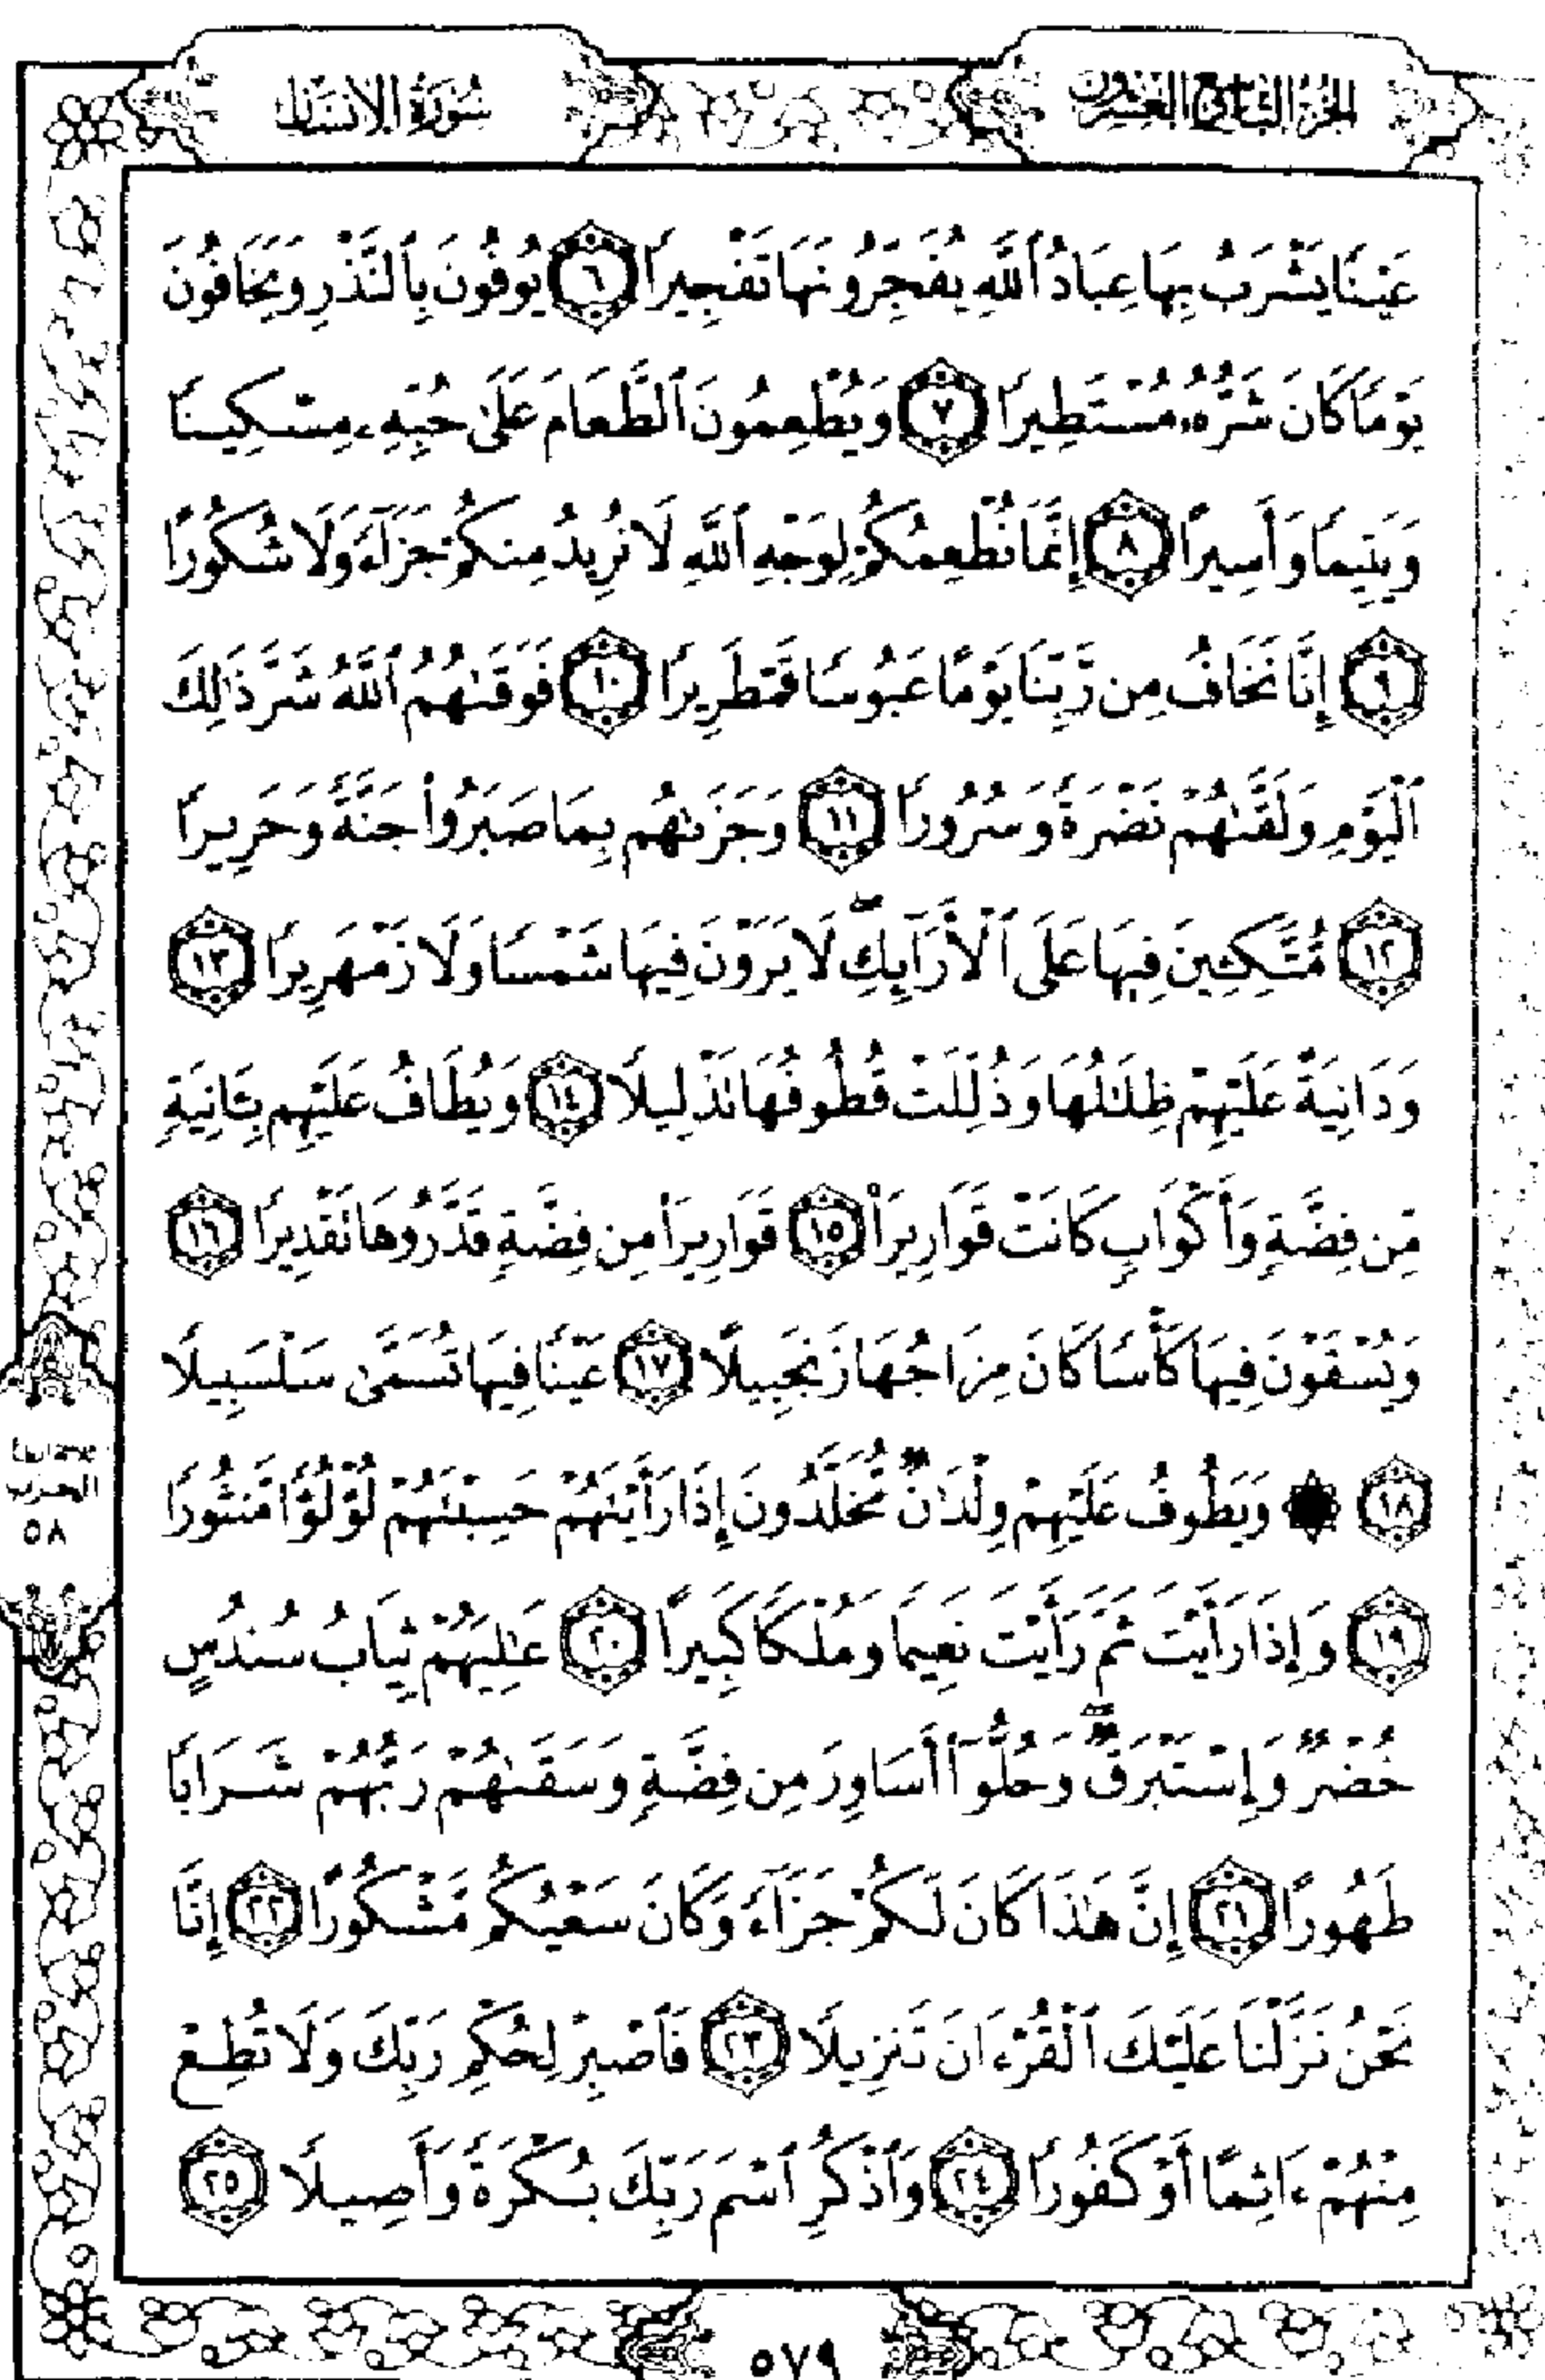 الجزء التاسع والعشرون
سورة الإنسان
عَيْنًا يَشْرَبُ بِهَا عِبَادُ ٱللَّهِ يُفَجِّرُونَهَا تَفْجِيرًا ٦ يُوفُونَ بِٱلنَّذْرِ وَيَخَافُونَ
يَوْمًا كَانَ شَرُّهُۥ مُسْتَطِيرًا ٧ وَيُطْعِمُونَ ٱلطَّعَامَ عَلَىٰ حُبِّهِۦ مِسْكِينًا
وَيَتِيمًا وَأَسِيرًا ٨ إِنَّمَا نُطْعِمُكُمْ لِوَجْهِ ٱللَّهِ لَا نُرِيدُ مِنكُمْ جَزَآءً وَلَا شُكُورًا
٩ إِنَّا نَخَافُ مِن رَّبِّنَا يَوْمًا عَبُوسًا قَمْطَرِيرًا ١٠ فَوَقَىٰهُمُ ٱللَّهُ شَرَّ ذَٰلِكَ
ٱلْيَوْمِ وَلَقَّىٰهُمْ نَضْرَةً وَسُرُورًا ١١ وَجَزَىٰهُم بِمَا صَبَرُوا۟ جَنَّةً وَحَرِيرًا
١٢ مُّتَّكِـِٔينَ فِيهَا عَلَى ٱلْأَرَآئِكِ ۖ لَا يَرَوْنَ فِيهَا شَمْسًا وَلَا زَمْهَرِيرًا ١٣
وَدَانِيَةً عَلَيْهِمْ ظِلَـٰلُهَا وَذُلِّلَتْ قُطُوفُهَا تَذْلِيلًا ١٤ وَيُطَافُ عَلَيْهِم بِـَٔانِيَةٍ
مِّن فِضَّةٍ وَأَكْوَابٍ كَانَتْ قَوَارِيرَا۠ ١٥ قَوَارِيرَا۟ مِن فِضَّةٍ قَدَّرُوهَا تَقْدِيرًا ١٦
وَيُسْقَوْنَ فِيهَا كَأْسًا كَانَ مِزَاجُهَا زَنجَبِيلًا ١٧ عَيْنًا فِيهَا تُسَمَّىٰ سَلْسَبِيلًا
١٨ ۞ وَيَطُوفُ عَلَيْهِمْ وِلْدَٰنٌ مُّخَلَّدُونَ إِذَا رَأَيْتَهُمْ حَسِبْتَهُمْ لُؤْلُؤًا مَّنثُورًا
١٩ وَإِذَا رَأَيْتَ ثَمَّ رَأَيْتَ نَعِيمًا وَمُلْكًا كَبِيرًا ٢٠ عَـٰلِيَهُمْ ثِيَابُ سُندُسٍ
خُضْرٌ وَإِسْتَبْرَقٌ ۖ وَحُلُّوٓا۟ أَسَاوِرَ مِن فِضَّةٍ وَسَقَىٰهُمْ رَبُّهُمْ شَرَابًا
طَهُورًا ٢١ إِنَّ هَـٰذَا كَانَ لَكُمْ جَزَآءً وَكَانَ سَعْيُكُم مَّشْكُورًا ٢٢ إِنَّا
نَحْنُ نَزَّلْنَا عَلَيْكَ ٱلْقُرْءَانَ تَنزِيلًا ٢٣ فَٱصْبِرْ لِحُكْمِ رَبِّكَ وَلَا تُطِعْ
مِنْهُمْ ءَاثِمًا أَوْ كَفُورًا ٢٤ وَٱذْكُرِ ٱسْمَ رَبِّكَ بُكْرَةً وَأَصِيلًا ٢٥
الحزب
٥٨
٥٧٩